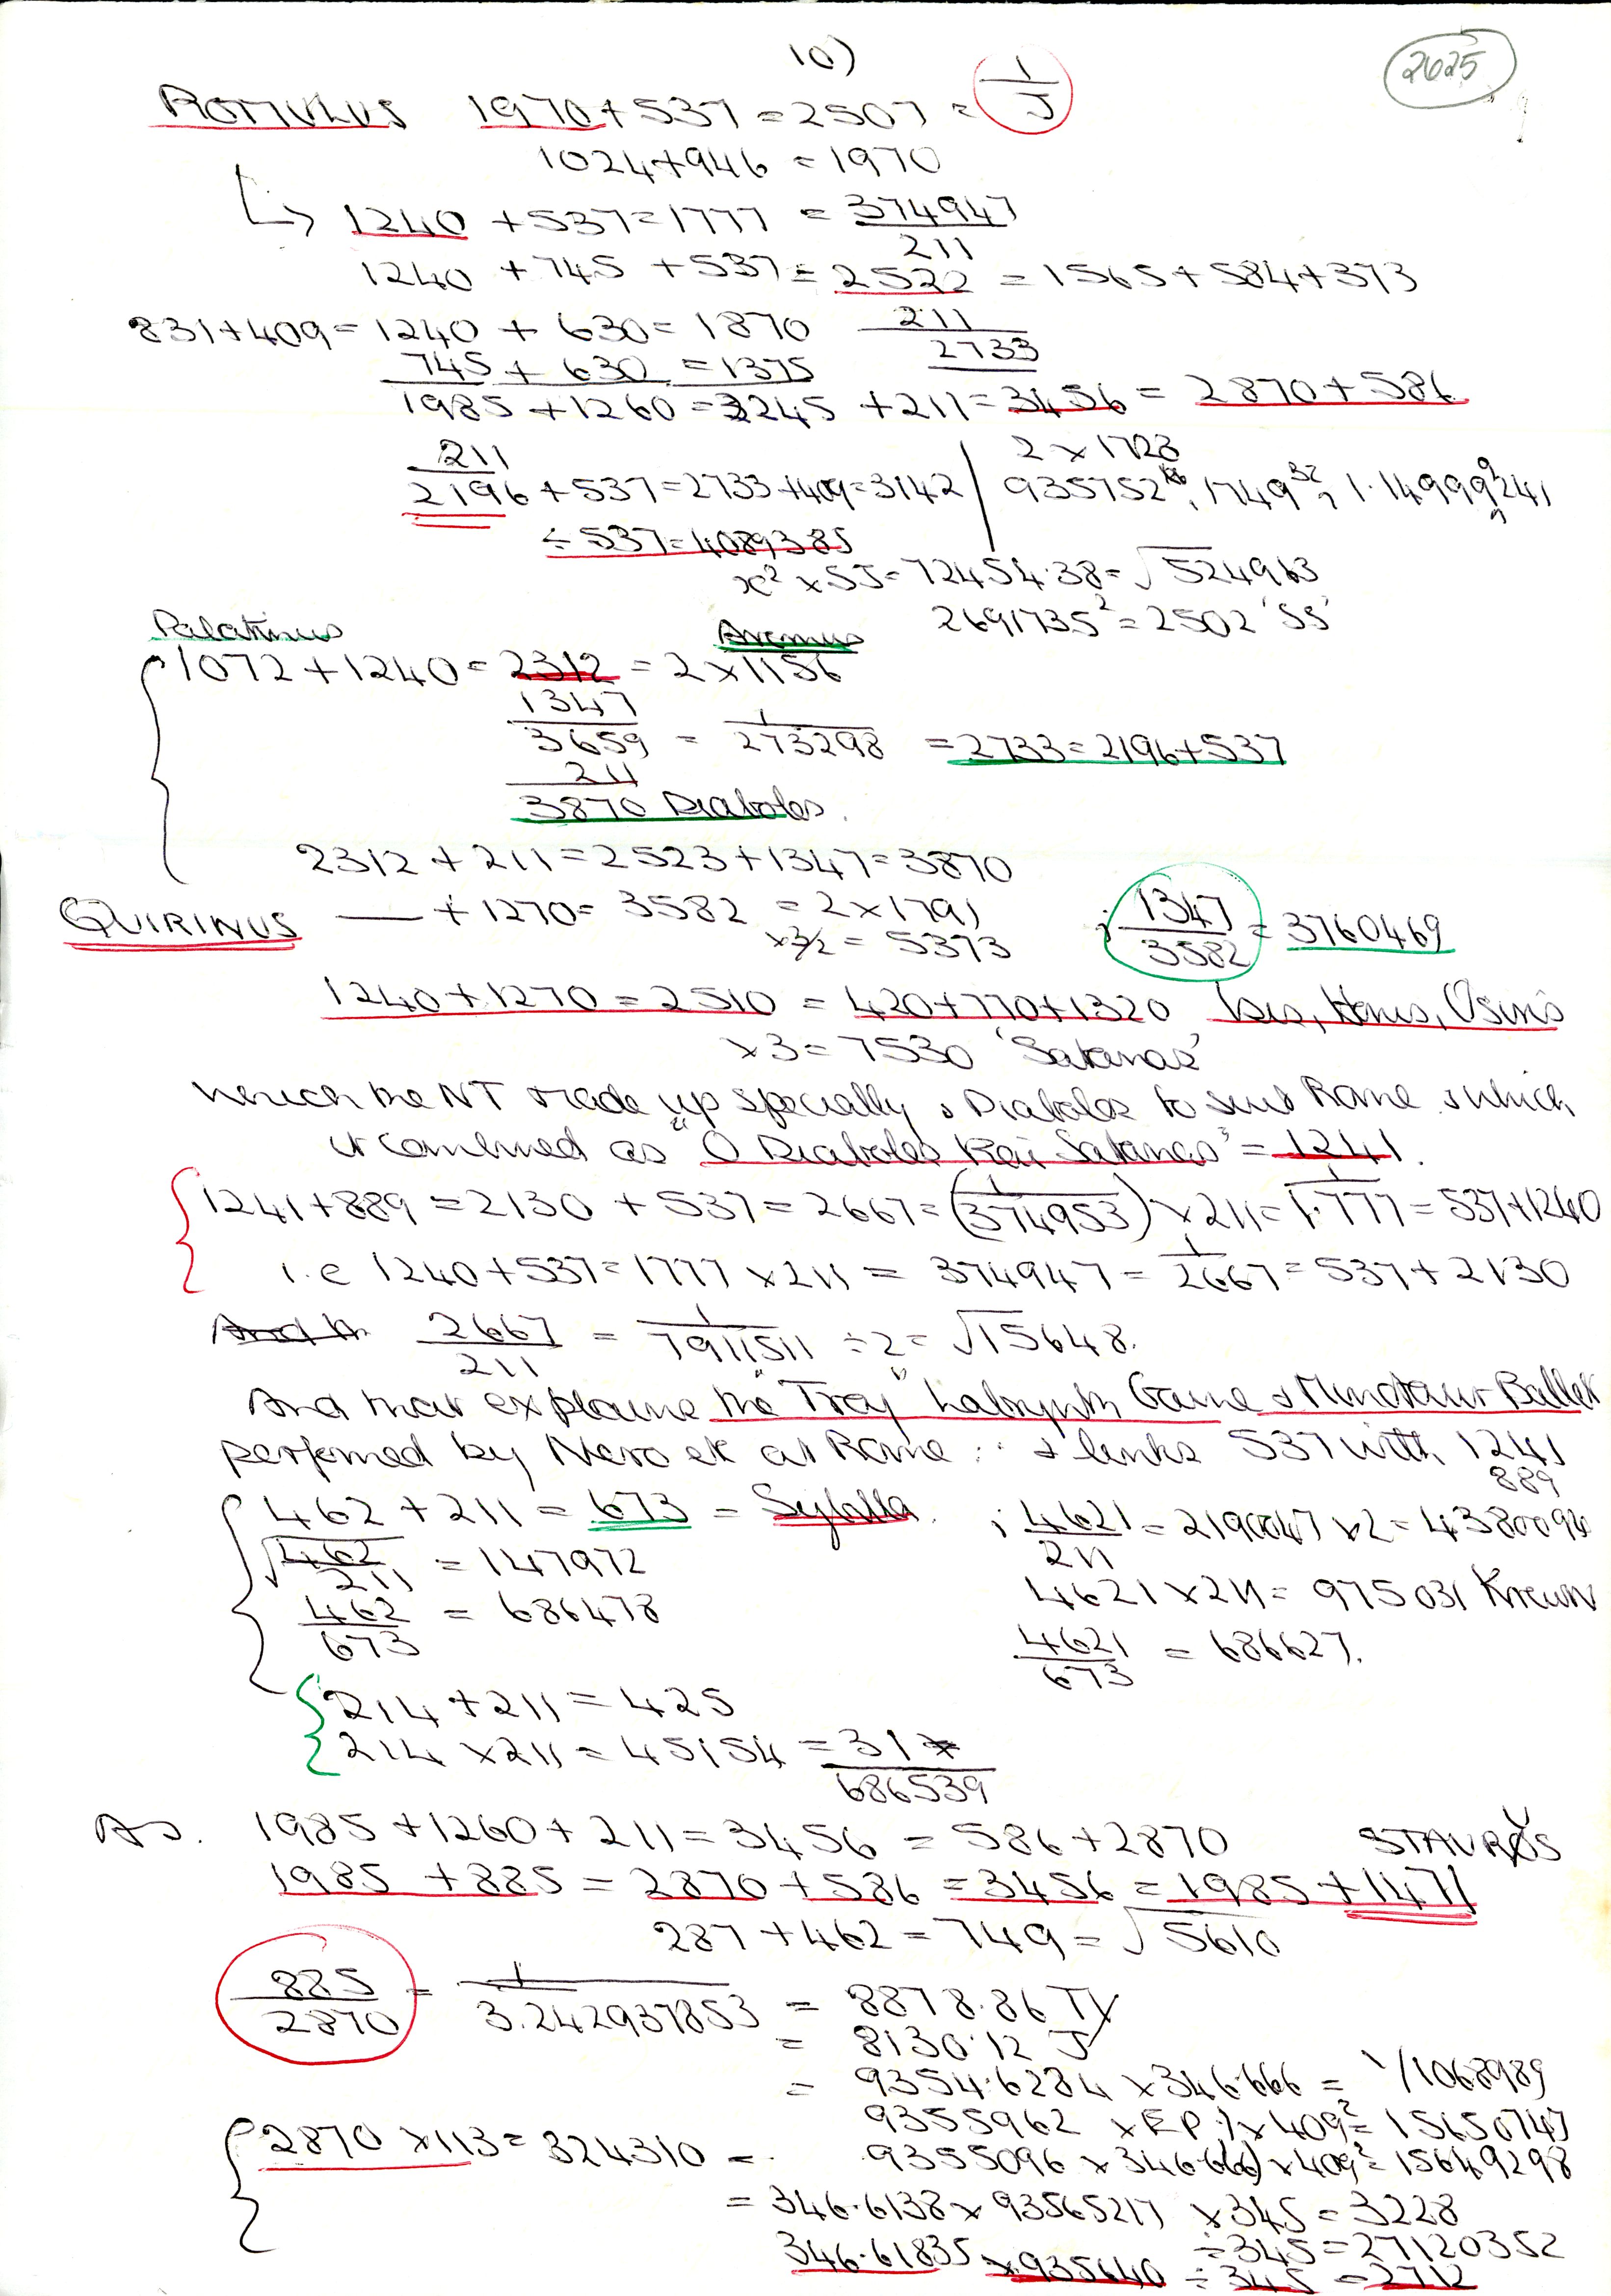 10)
2625
ROMULUS 1970 + 537 = 2507 = 1/J
1024 + 946 = 1970
↳ 1240 + 537 = 1777 = 374947/211
1240 + 745 + 537 = 2522 = 1565 + 584 + 373
831 + 409 = 1240 + 630 = 1870 211
745 + 630 = 1375 2733
1985 + 1260 = 3245 + 211 = 3456 = 2870 + 586
211 2 x 1728
2196 + 537 = 2733 + 409 = 3142 | 935752, 1749, 1.14999241
÷ 537 = 4089385
x² x 55 = 72454.38 = √524963
2691735² = 2502 'SS'
Palatinus
1072 + 1240 = 2312 = 2 x 1156
1347
3659 = 1/273298 = 2733 = 2196 + 537
211
3870 Diabolos.
2312 + 211 = 2523 + 1347 = 3870
QUIRINUS — + 1270 = 3582 = 2 x 1791 ; 1347/3582 = 3760469
x 3/2 = 5373
1240 + 1270 = 2510 = 420 + 770 + 1320 Isis, Horus, Osiris
x 3 = 7530 'Satanas'
which the NT made up specially & Diabolos to suit Rome & which
it combined as "O Diabolos Kai Satanas" = 1241.
1241 + 889 = 2130 + 537 = 2667 = (1/374953) x 211 = 1/1.777 = 537 + 1240
i.e 1240 + 537 = 1777 x 211 = 374947 = 1/2667 = 537 + 2130
2667/211 = 1/7911511 ÷ 2 = √15648.
And that explains the "Troy" Labrynth Game & Minotaur Ballet
performed by Nero etc at Rome & links 537 with 1241
889
462 + 211 = 673 = Sybilla. ; 4621/211 = 2190047 x 2 = 4380094
√462/211 = 147972
4621 x 211 = 975031
462/673 = 686478
4621/673 = 686627.
214 + 211 = 425
214 x 211 = 45154 = 31/686539
As. 1985 + 1260 + 211 = 3456 = 586 + 2870 STAUROS
1985 + 885 = 2870 + 586 = 3456 = 1985 + 1471
287 + 462 = 749 = √5610
885/2870 = 1/3.242937853 = 8878.86 TY
= 8130.12 J
= 9354.6284 x 346.666 = 1/1068989
9355962 x EP) x 409² = 15650747
2870 x 113 = 324310 = 9355096 x 346.666) x 409² = 15649298
= 346.6138 x 93565217 x 345 = 3228
÷ 345 = 27120352
346.61835 x 935640 ÷ 345 = 2712